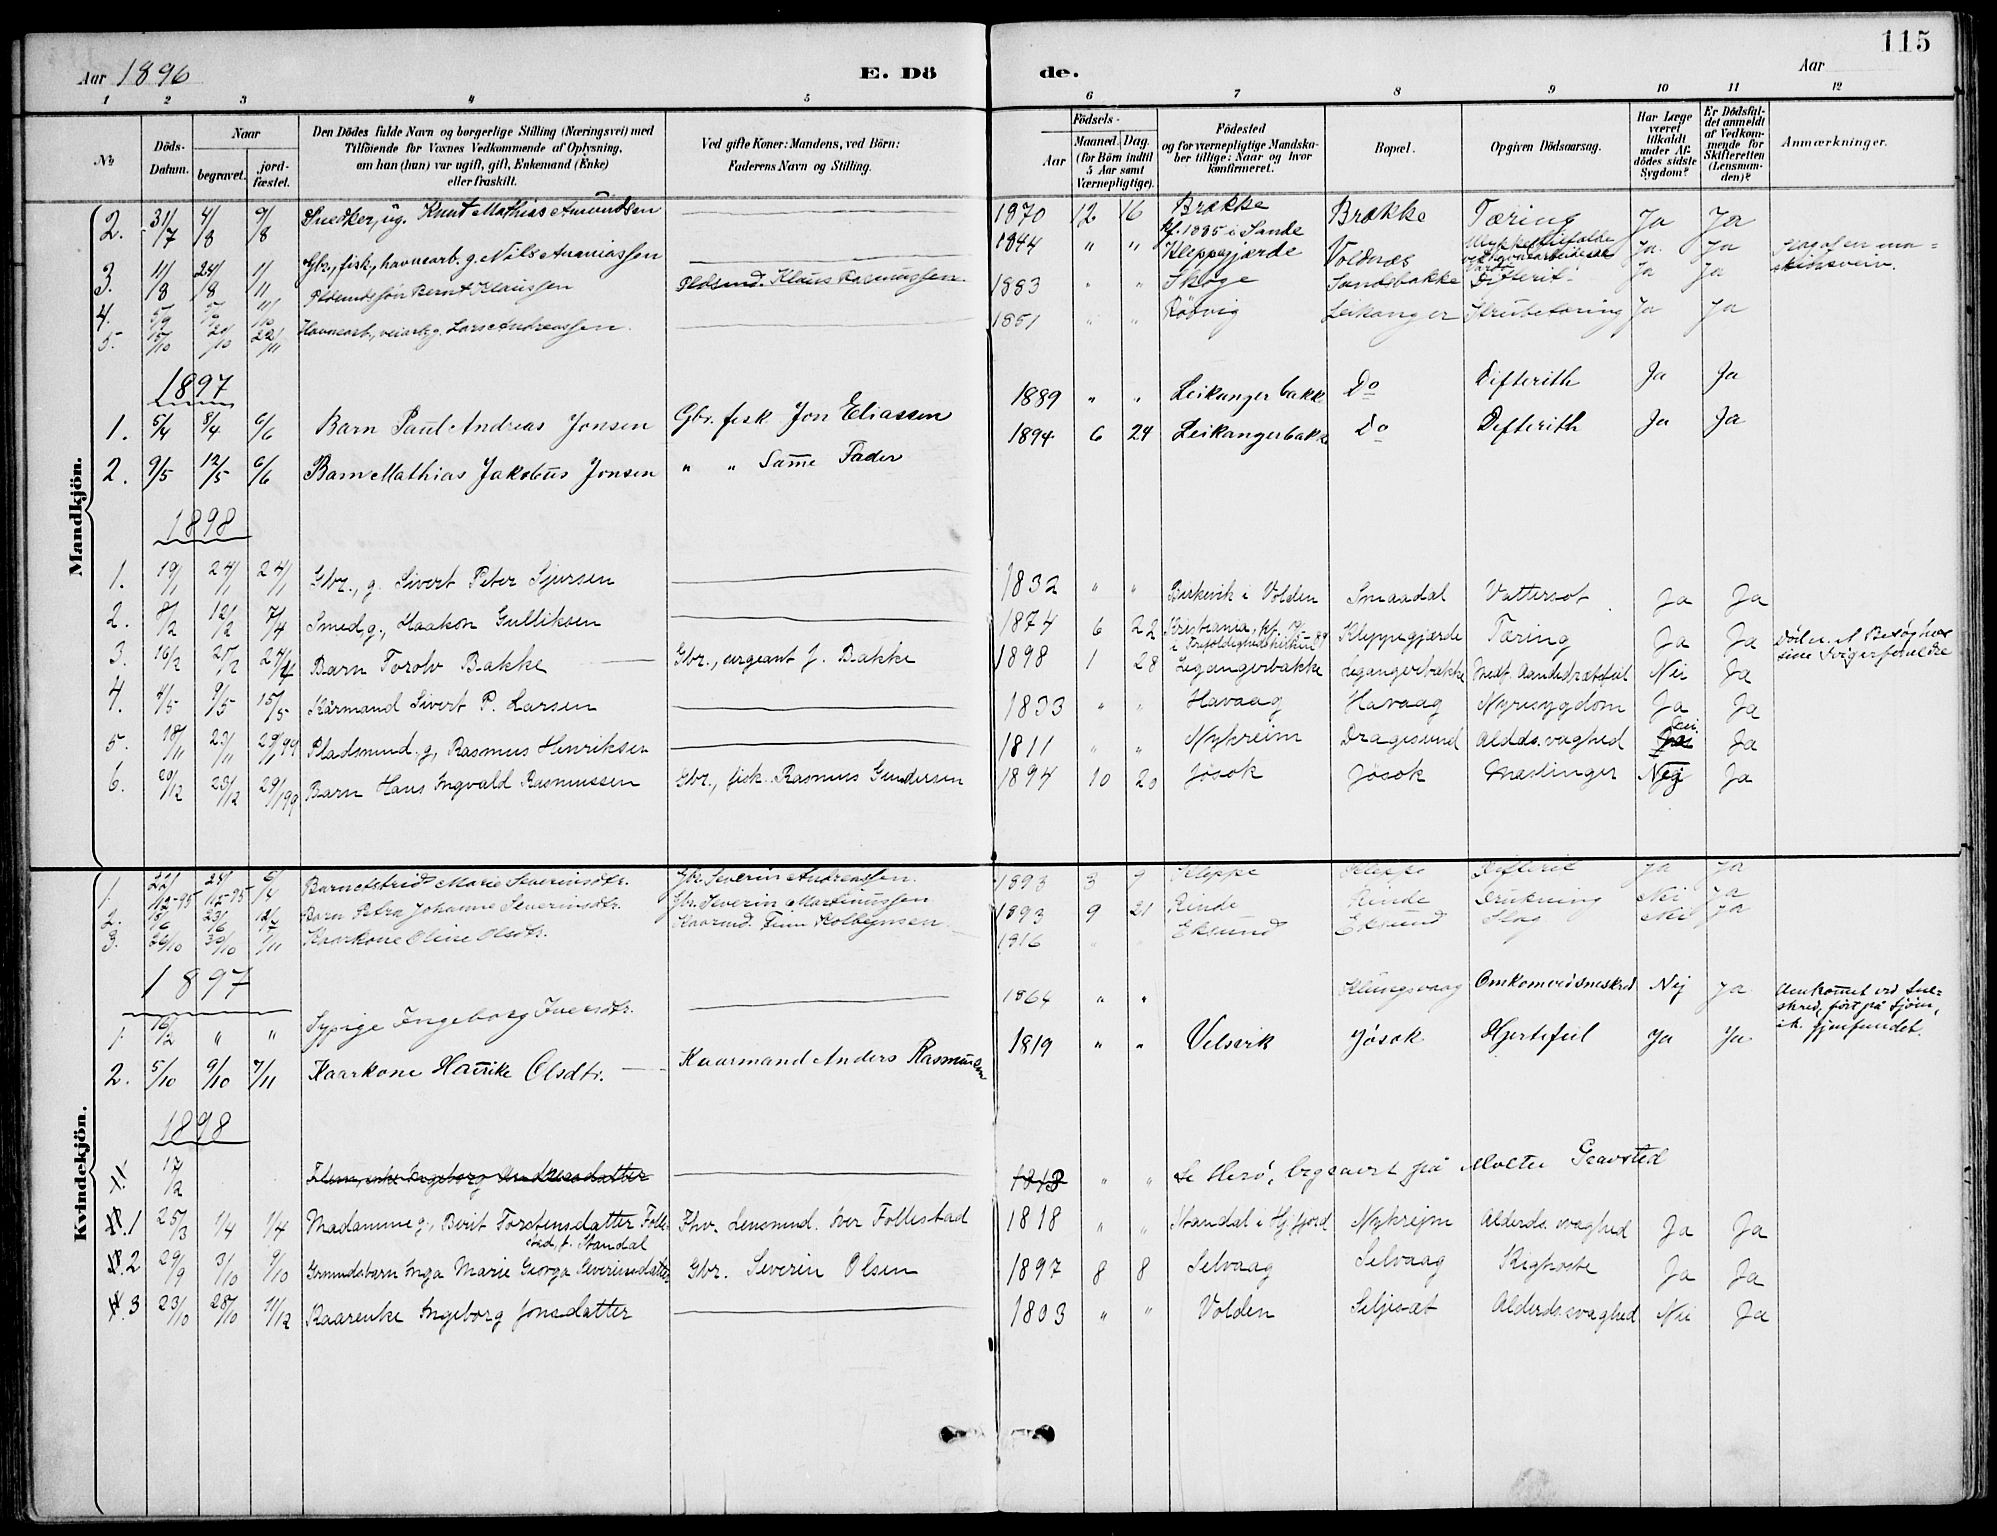 115
Aar 1896
E. Dö
de.
Aar
1 2 3 4 5 6 7 8 9 10 11 12
No
Döds-Datum.
Naar
begravet.
jord-fæstet.
Den Dödes fulde Navn og borgerlige Stilling (Næringsvei) med
Tilföiende for Voxnes Vedkommende af Oplysning,
om han (hun) var ugift, gift, Enkemand (Enke)
eller fraskilt.
Ved gifte Koner: Mandens, ved Börn:
Faderens Navn og Stilling.
Födsels-
Aar
Maaned. Dag.
(for Börn indtil
5 Aar samt
Værnepligtige).
Födested
og for værnepligtige Mandska-
ber tillige: Naar og hvor
konfirmeret.
Bopæl.
Opgiven Dödsaarsag.
Har Læge
været
tilkaldt
under Af-
dödes sidste
Sygdom?
Er Dödsfal-
det anmeldt
af Vedkom-
mende for
Skifteretten
(Lensman-
den)?
Anmærkninger.
Mandkjön.
2. 31/7 4/8 9/8 Snedker, ug. Knut Mathias Amundsen 1870 12 16 Brække kf. 1885 i Sande Brække Tæring Ja Ja
3. 11/8 24/8 1/11 Gbr., fisk., havnearb. g. Nils Ananiassen 1844 " " Kleppegjærde Voldnæs Ja Ja
4. 5/9 Pldsmdssøn Bernt Klaussen Pldsmd. Klaus Rasmussen 1883 " " Skoge Sandsbakke Difterit Ja Ja
5. 15/10 20/10 22/11 Havnearb., veiarb. g. Lars Andreassen 1851 " " Røbvig Leikanger Strubetæring Ja Ja
1897
1. 5/4 8/4 6/6 Barn Paul Andreas Jonsen Gbr. fisk. Jon Eliassen 1889 " " Leikangerbakk Do Difterith Ja Ja
2. 9/5 12/5 6/6 Barn Mathias Jakobus Jonsen " " Samme Fader 1894 6 24 Leikangerbakk Do Difterith Ja Ja
1898
1. 19/1 24/1 24/1 Gbr., g. Sivert Peter Sjursen 1832 " " Birkevik i Volden Smaadal Vattersot Ja Ja
2. 8/2 12/2 7/4 Smed, g., Haakon Gulliksen 1874 6 22 Kristiania, kf. Kleppegjærde Tæring Ja Ja Døde u. et Besøg hos sine Svigerforældre
3. 16/2 25/2 27/4 Barn Torolv Bakke Gbr., sergeant J. Bakke 1898 1 28 Legangerbakke Legangerbakke Medf. Aandedrætsfeil Nei Ja
4. 4/5 9/5 15/5 Kårmand Sivert P. Larsen 1833 " " Havaag Havaag Nyresygdom Ja Ja
5. 18/11 23/11 29/1 99 Pladsmnd. g, Rasmus Henriksen 1811 " " Nykreim Dragesund Aldds.svaghed Nei Ja
6. 20/12 23/12 29/1 99 Barn Hans Ingvald Rasmussen Gbr., fisk. Rasmus Gundersen 1894 10 20 Jøsok Jøsok Mæslinger Nej Ja
Kvindekjön.
1. 22/12-95 Barn Astrid Marie Severinsdtr. Gbr. Severin Andreassen. 1893 3 9 Kleppe Kleppe Difterit Ja Ja
2. 18/6 23/6 12/7 Barn Petra Johanne Severinsdtr. Gbr. Severin Martinussen 1893 9 21 Rinde Rinde Drukning Nei Ja
3. 26/10 30/10 1/11 Kaarkone Oline Olsdtr. Kaarmd. Finn Kolbeinsen 1816 " " Eksund Eksund Slag Nei Ja
1897
1. 16/2 " " Sypige Ingeborg Iversdtr. 1864 " " Klungsvaag Omkom ved sneskred Nej Ja Omkommet ved Sne-
skred, ført på Sjøen,
ik. gjenfundet.
2. 5/10 9/10 7/11 Kaarkone Haurike Olsdtr. Kaarmand Anders Rasmussen 1819 " " Velsvik Jøsok Hjertefeil Ja Ja
1898
17/2 Ingeborg Andreasdatter 1813 " " Se Herø, begravet på Moltu Gravsted
1 25/3 1/4 1/4 Madamme g., Berit Torstensdatter Follestad, f. Standal Fhv. Lensmnd. Iver Follestad 1818 " " Standal i Hj.fjord Nykrejm Alderds.svaghed Ja Ja
2 29/9 3/10 9/10 Grmndsbarn Inga Marie Georga Severinsdatter Gbr. Severin Olsen 1897 8 8 Selvaag Selvaag Kighoste Ja Ja
3 23/10 28/10 11/12 Kaarenke Ingeborg Jonsdatter 1803 " " Volden Seljesæt Alderds.svaghed Nei Ja